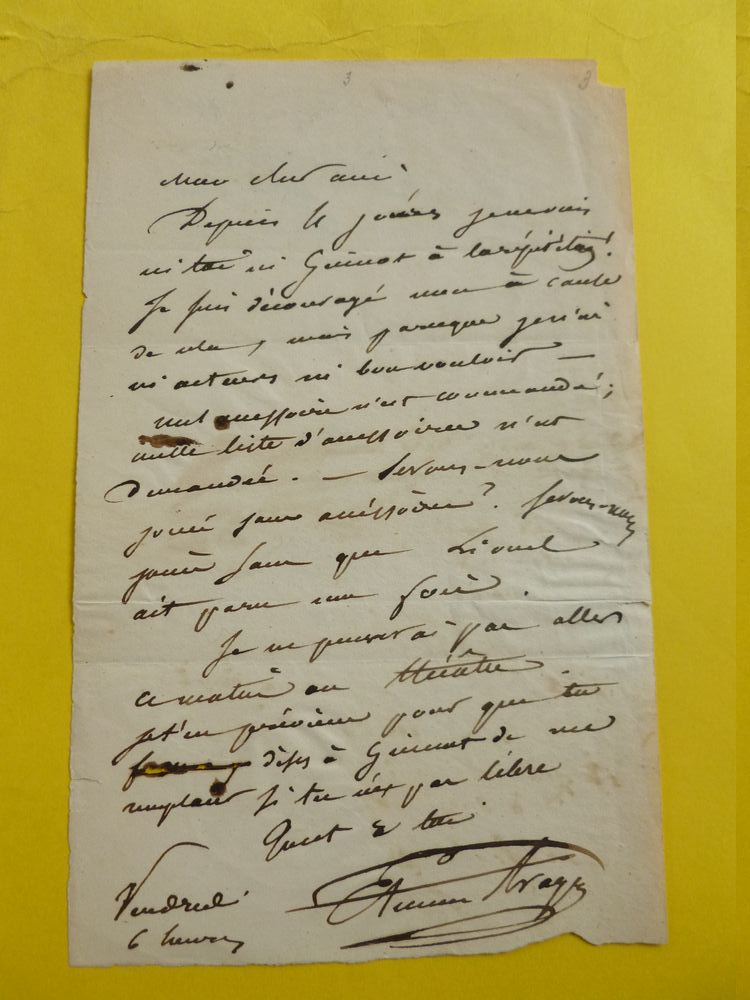 3 3
Mon cher ami
Depuis 4 jours je ne vois
ni toi ni Guinot à la répétition.
Je suis découragé non à cause
de cela, mais parceque je n'ai
ni acteurs ni bon vouloir —
nul accessoire n'est commandé;
nulle liste d'accessoires n'est
demandée. — Serons-nous
joués sans accessoires? Serons-nous
joués sans que Lionel
ait paru une fois.
Je ne pourrai pas aller
ce matin au théâtre.
je t'en préviens pour que tu
dises à Guinot de me
remplacer si tu n'es pas libre
Tout à toi
Vendredi
6 heures
Etienne Arago